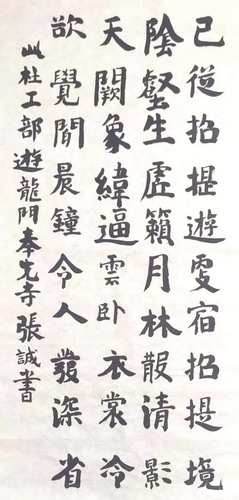 已從招提遊更宿招提境
陰壑生虛籟月林散清影
天闕象緯逼雲卧衣裳冷
欲覺聞晨鐘令人發深省
此杜工部遊龍門奉先寺張誠書